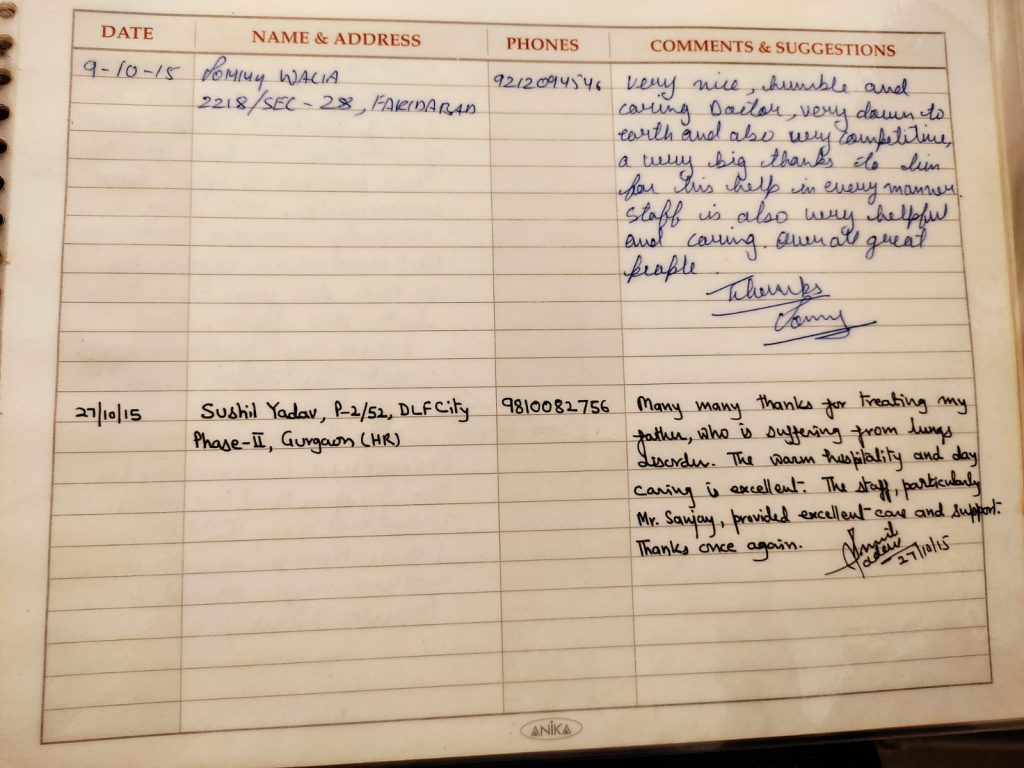 DATE NAME & ADDRESS PHONES COMMENTS & SUGGESTIONS
9-10-15 Pommy WALIA 9212094546 very nice, humble and
2218/SEC-28, FARIDABAD caring Doctor, very down to
earth and also very competitive,
a very big thanks to him
for his help in every manner
Staff is also very helpful
and caring. Over all great
people.
Thanks
27/10/15 Sushil Yadav, P-2/52, DLF City 9810082756 Many many thanks for treating my
Phase-II, Gurgaon (HR) father, who is suffering from lungs
disorder. The warm hospitality and day
caring is excellent. The staff, particularly
Mr. Sanjay, provided excellent care and support.
Thanks once again.
27/10/15
ANIKA